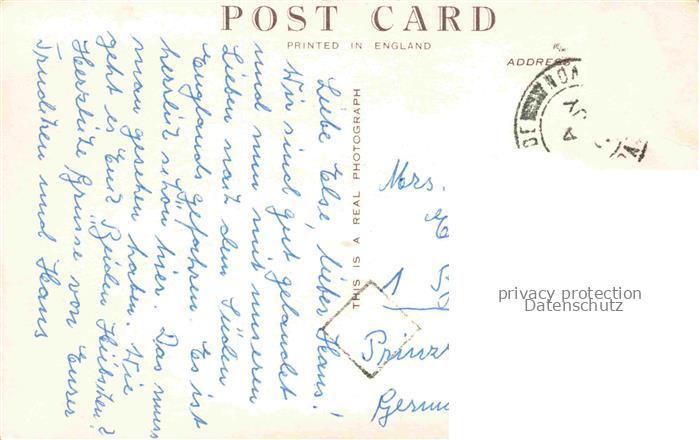 POST CARD
PRINTED IN ENGLAND
ADDRESS
THIS IS A REAL PHOTOGRAPH
Liebe Else, lieber Hans!
Wir sind gut gelandet
und nun mit unseren
Lieben nach dem Süden
Englands gefahren. Es ist
herrlich schon hier. Das muss
man gesehen haben. Wie
geht es Euch Beiden Hübschen?
Herzliche Grüsse von Eurer
Trudchen und Hans
Mrs.
1
Prinz
Germ
privacy protection
Datenschutz